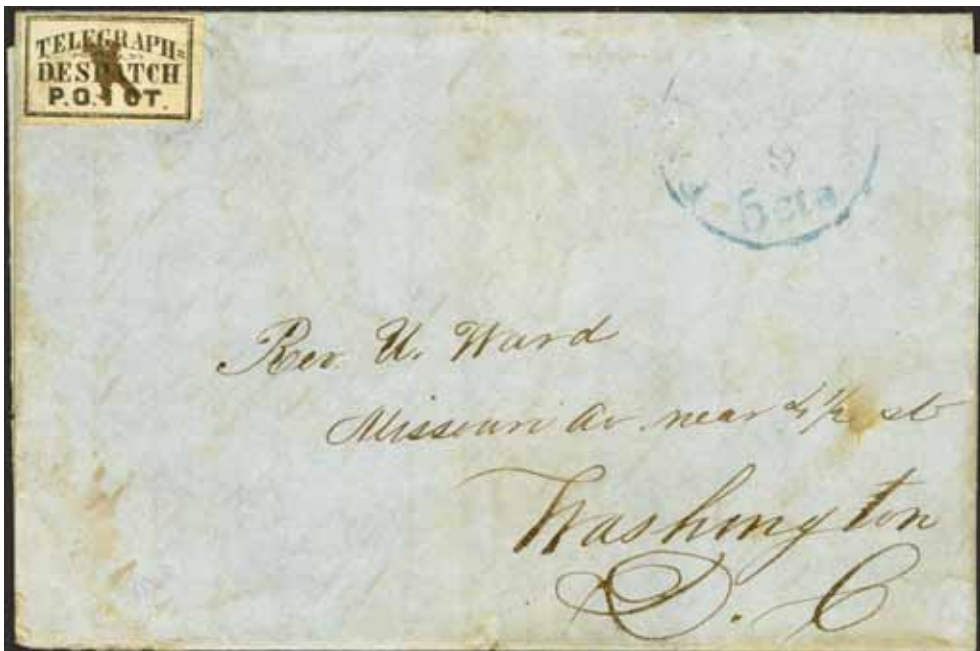 TELEGRAPH=
DESPATCH
P.O. 1 CT.
5 cts
Rev. U. Ward
Missouri Av near 4 1/2 st
Washington
D. C